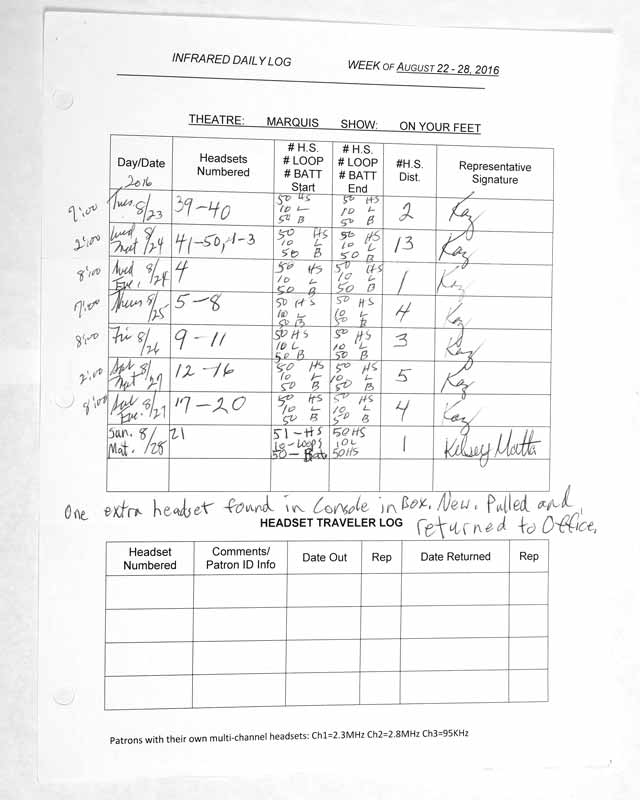 INFRARED DAILY LOG WEEK OF AUGUST 22 - 28, 2016
THEATRE: MARQUIS SHOW: ON YOUR FEET
Day/Date 2016 Headsets Numbered # H.S. # LOOP # BATT Start # H.S. # LOOP # BATT End #H.S. Dist. Representative Signature
7:00 Tues 8/23 39-40 50 HS 10 L 50 B 50 HS 10 L 50 B 2 Kay
2:00 Wed Mat 8/24 41-50, 1-3 50 HS 10 L 50 B 50 HS 10 L 50 B 13 Kay
8:00 Wed Eve. 8/24 4 50 HS 10 L 50 B 50 HS 10 L 50 B 1 Kay
7:00 Thurs 8/25 5-8 50 HS 10 L 50 B 50 HS 10 L 50 B 4 Kay
8:00 Fri 8/26 9-11 50 HS 10 L 50 B 50 HS 10 L 50 B 3 Kay
2:00 Sat Mat 8/27 12-16 50 HS 10 L 50 B 50 HS 10 L 50 B 5 Kay
8:00 Sat Eve. 8/27 17-20 50 HS 10 L 50 B 50 HS 10 L 50 B 4 Kay
Sun. Mat. 8/28 21 51-HS 10-Loops 50-Bat 50HS 10L 50HS 1 Kelsey Matta
One extra headset found in Console in Box. New. Pulled and
returned to Office.
HEADSET TRAVELER LOG
Headset Numbered Comments/ Patron ID Info Date Out Rep Date Returned Rep
Patrons with their own multi-channel headsets: Ch1=2.3MHz Ch2=2.8MHz Ch3=95KHz